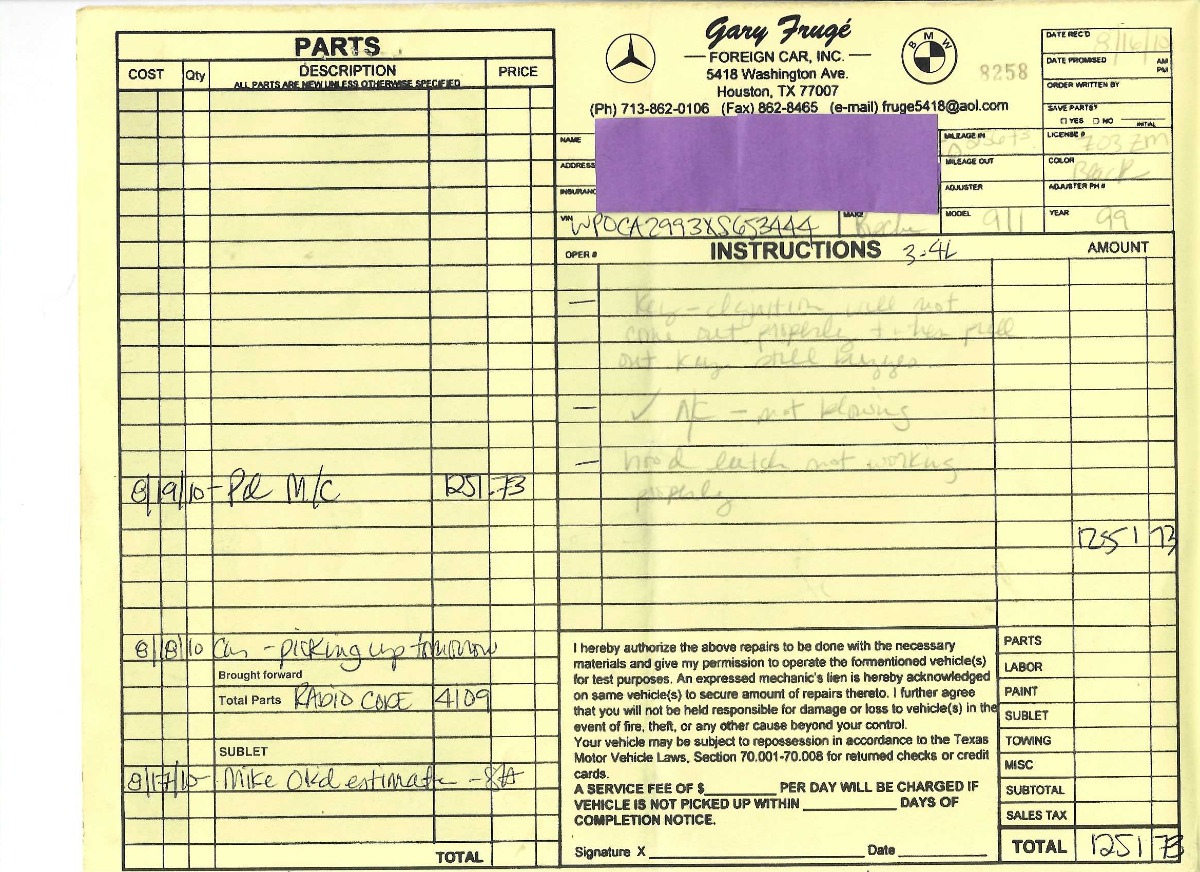 PARTS
COST Qty DESCRIPTION PRICE
ALL PARTS ARE NEW UNLESS OTHERWISE SPECIFIED
8/19/10 - Pd M/C 1251.73
8/18/10 Cus - picking up tomorrow
Brought forward
Total Parts RADIO CODE 4109
SUBLET
8/17/10 - Mike Okd estimate
TOTAL
Gary Frugé
FOREIGN CAR, INC.
5418 Washington Ave.
Houston, TX 77007
(Ph) 713-862-0106 (Fax) 862-8465 (e-mail) fruge5418@aol.com
BMW
8258
DATE REC'D 8/16/10
DATE PROMISED AM PM
ORDER WRITTEN BY
SAVE PARTS?
YES NO INITIAL
NAME
ADDRESS
INSURANC
MILEAGE IN
MILEAGE OUT
ADJUSTER
LICENSE # 703 ZM
COLOR Black
ADJUSTER PH #
VIN WP0CA2993XS653444 MAKE Porsche MODEL 911 YEAR 99
OPER # INSTRUCTIONS 3.4L AMOUNT
— Key - ignition will not
come out properly + when pull
out key still buzzes.
— ✓ A/C - not blowing
— hood latch not working
properly
1251 73
I hereby authorize the above repairs to be done with the necessary
materials and give my permission to operate the formentioned vehicle(s)
for test purposes. An expressed mechanic's lien is hereby acknowledged
on same vehicle(s) to secure amount of repairs thereto. I further agree
that you will not be held responsible for damage or loss to vehicle(s) in the
event of fire, theft, or any other cause beyond your control.
Your vehicle may be subject to repossession in accordance to the Texas
Motor Vehicle Laws, Section 70.001-70.008 for returned checks or credit
cards.
A SERVICE FEE OF $________ PER DAY WILL BE CHARGED IF
VEHICLE IS NOT PICKED UP WITHIN ________ DAYS OF
COMPLETION NOTICE.
Signature X ________ Date ________
PARTS
LABOR
PAINT
SUBLET
TOWING
MISC
SUBTOTAL
SALES TAX
TOTAL 1251 73